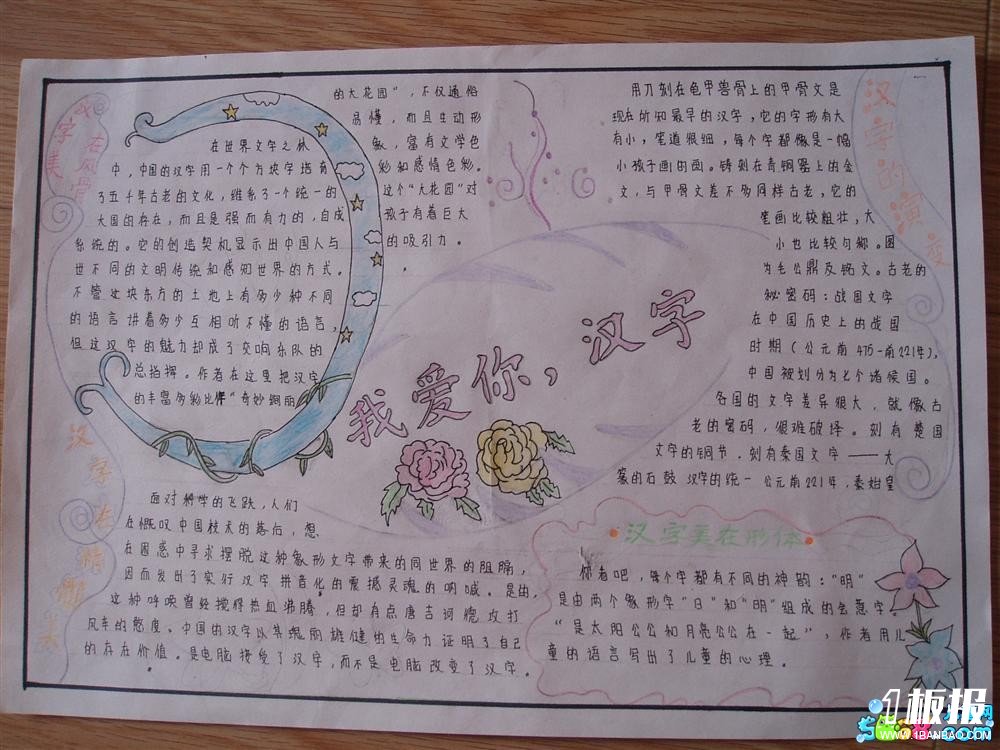 汉字美在风骨
在世界文字之林
中，中国的汉字用一个个方块字培育
了五千年古老的文化，维系了一个统一的
大国的存在，而且是强而有力的，自成
系统的。它的创造契机显示出中国人与
世不同的文明传统和感知世界的方式。
不管这块东方的土地上有多少种不同
的语言讲着多少互相听不懂的语言，
但这汉字的魅力却成了交响乐队的
总指挥。作者在这里把汉字
的丰富多彩比作"奇妙绚丽
的大花园"，不仅通俗
易懂，而且生动形
象，富有文学色
彩和感情色彩。
这个"大花园"对
孩子有着巨大
的吸引力。
我爱你，汉字
汉字的演变
用刀刻在龟甲兽骨上的甲骨文是
现在所知最早的汉字，它的字形有大
有小，笔道很细，每个字都像是一幅
小孩子画的画。铸刻在青铜器上的金
文，与甲骨文差不多同样古老，它的
笔画比较粗壮，大
小也比较匀称。图
为毛公鼎及铭文。古老的
秘密码：战国文字
在中国历史上的战国
时期（公元前475-前221年），
中国被划分为七个诸候国。
各国的文字差异很大，就像古
老的密码，很难破译。刻有楚国
文字的铜节．刻有秦国文字——大
篆的石鼓 汉字的统一 公元前221年，秦始皇
汉字在精神美
面对科学的飞跃，人们
在慨叹中国技术的落后，想
在困惑中寻求摆脱这种象形文字带来的同世界的阻隔，
因而发出了实行汉字拼音化的震撼灵魂的呐喊。是的，
这种呼唤曾经搅得热血沸腾，但却有点唐吉诃德攻打
风车的憨度。中国的汉字以其瑰丽雄健的生命力证明了自己
的存在价值。是电脑接受了汉字，而不是电脑改变了汉字．
·汉字美在形体·
你看吧，每个字都有不同的神韵："明"
是由两个象形字"日"和"明"组成的会意字，
"是太阳公公和月亮公公在一起"，作者用儿
童的语言写出了儿童的心理。
1板报
WWW.1BANBAO.COM